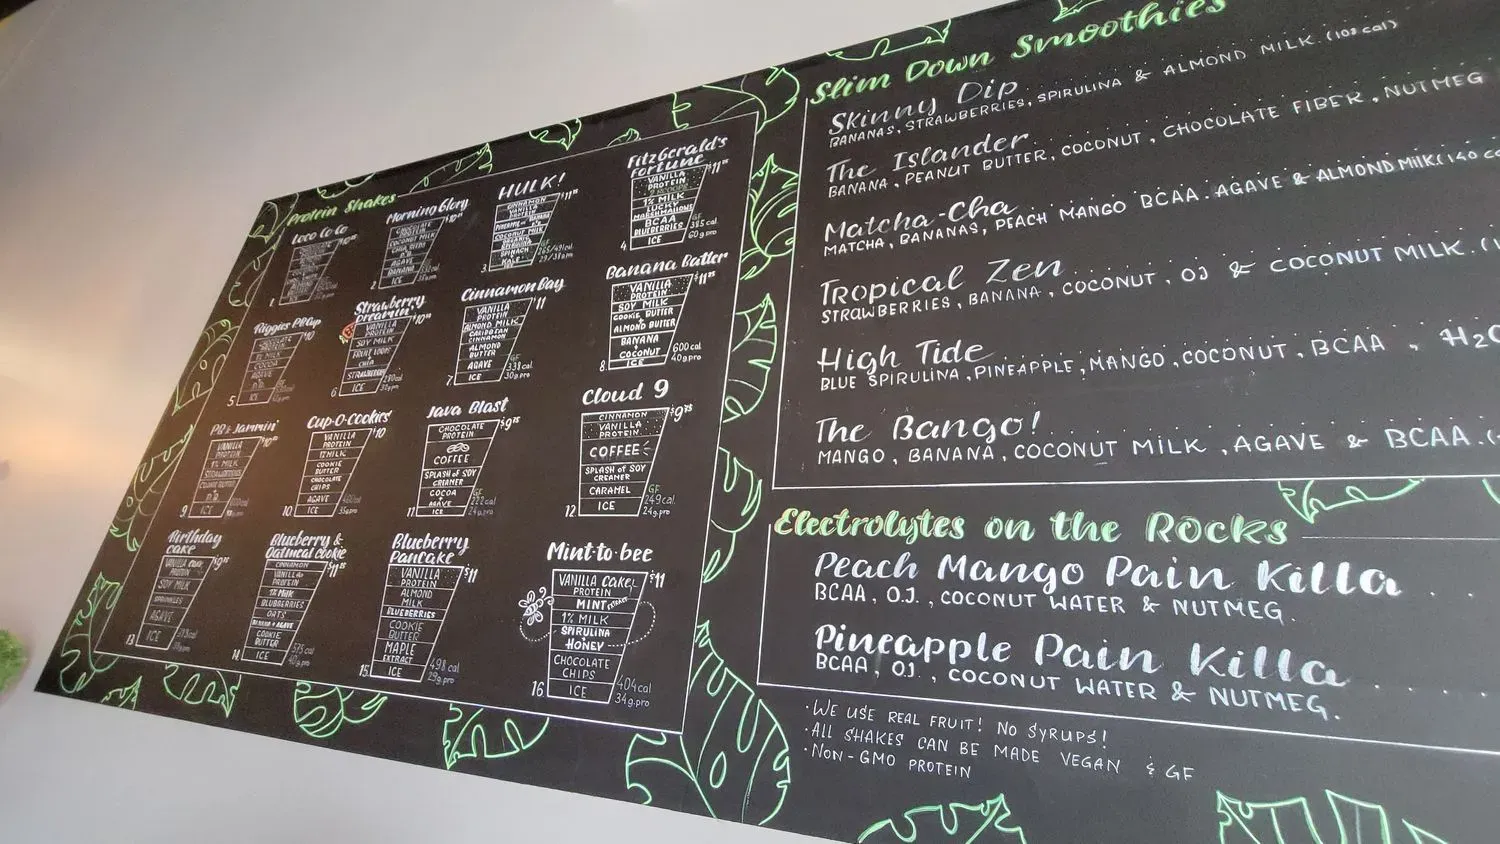 Protein Shakes
Loco Co Co
1
Morning Glory
COCONUT MILK
CHIA SEEDS
AGAVE
BANANA
2
HULK!
CINNAMON
VANILLA
PROTEIN
COCONUT MILK
SPINACH
KALE
ICE
GF
3
FitzGerald's
Fortune
VANILLA
PROTEIN
2 SCOOPS
1% MILK
LUCKY
MARSHMALLOWS
BCAA
BLUEBERRIES
ICE
GF
385 cal
60g.pro
4
$10
1% MILK
COCOA
AGAVE
P.B.
ICE
5
Strawberry
Dreamin'
VANILLA
PROTEIN
SOY MILK
FRUIT LOOPS
CHIA
STRAWBERRY
ICE
6
Cinnamon Bay
$11
VANILLA
PROTEIN
ALMOND MILK
CINNAMON
ALMOND
BUTTER
AGAVE
ICE
GF
338cal
30g.pro
7
Banana Butter
VANILLA
PROTEIN
SOY MILK
COOKIE BUTTER
+
ALMOND BUTTER
BANANA
+
COCONUT
ICE
600cal
40g.pro
8
PB & Jammin'
VANILLA
PROTEIN
1% MILK
STRAWBERRIES
COOKIE BUTTER
P.B.
ICE
9
Cup-O-Cookies
$10
VANILLA
PROTEIN
1% MILK
COOKIE
BUTTER
CHOCOLATE
CHIPS
AGAVE
ICE
10
Java Blast
CHOCOLATE
PROTEIN
COFFEE
SPLASH of SOY
CREAMER
COCOA
+
AGAVE
ICE
GF
222cal
24g.pro
11
Cloud 9
$9.75
CINNAMON
VANILLA
PROTEIN
COFFEE
SPLASH of SOY
CREAMER
CARAMEL
ICE
GF
249cal.
24g.pro
12
Birthday
cake
VANILLA cake
PROTEIN
SOY MILK
SPRINKLES
AGAVE
ICE
13
Blueberry &
Oatmeal cookie
CINNAMON
VANILLA
PROTEIN
1% Milk
BLUEBERRIES
OATS
BANANA + AGAVE
COOKIE
BUTTER
ICE
575cal
14
Blueberry
Pancake
$11
VANILLA
PROTEIN
ALMOND
MILK
BLUEBERRIES
COOKIE
BUTTER
MAPLE
EXTRACT
ICE
498 cal
29g.pro
15
Mint-to-bee
$11
VANILLA cake
PROTEIN
MINT EXTRACT
1% MILK
SPIRULINA
+
HONEY
CHOCOLATE
CHIPS
ICE
404cal
34g.pro
16
Slim Down Smoothies
Skinny Dip
BANANAS, STRAWBERRIES, SPIRULINA & ALMOND MILK. (108 cal)
The Islander
BANANA, PEANUT BUTTER, COCONUT, CHOCOLATE FIBER, NUTMEG
Matcha-Cha
MATCHA, BANANAS, PEACH MANGO BCAA. AGAVE & ALMOND MILK (140 ca
Tropical Zen
STRAWBERRIES, BANANA, COCONUT, OJ & COCONUT MILK. (1
High Tide
BLUE SPIRULINA, PINEAPPLE, MANGO, COCONUT, BCAA, H2O
The Bango!
MANGO, BANANA, COCONUT MILK, AGAVE & BCAA. (
Electrolytes on the Rocks
Peach Mango Pain Killa
BCAA, O.J., COCONUT WATER & NUTMEG.
Pineapple Pain Killa
BCAA, O.J., COCONUT WATER & NUTMEG.
· WE USE REAL FRUIT! NO SYRUPS!
· ALL SHAKES CAN BE MADE VEGAN & GF
· NON-GMO PROTEIN